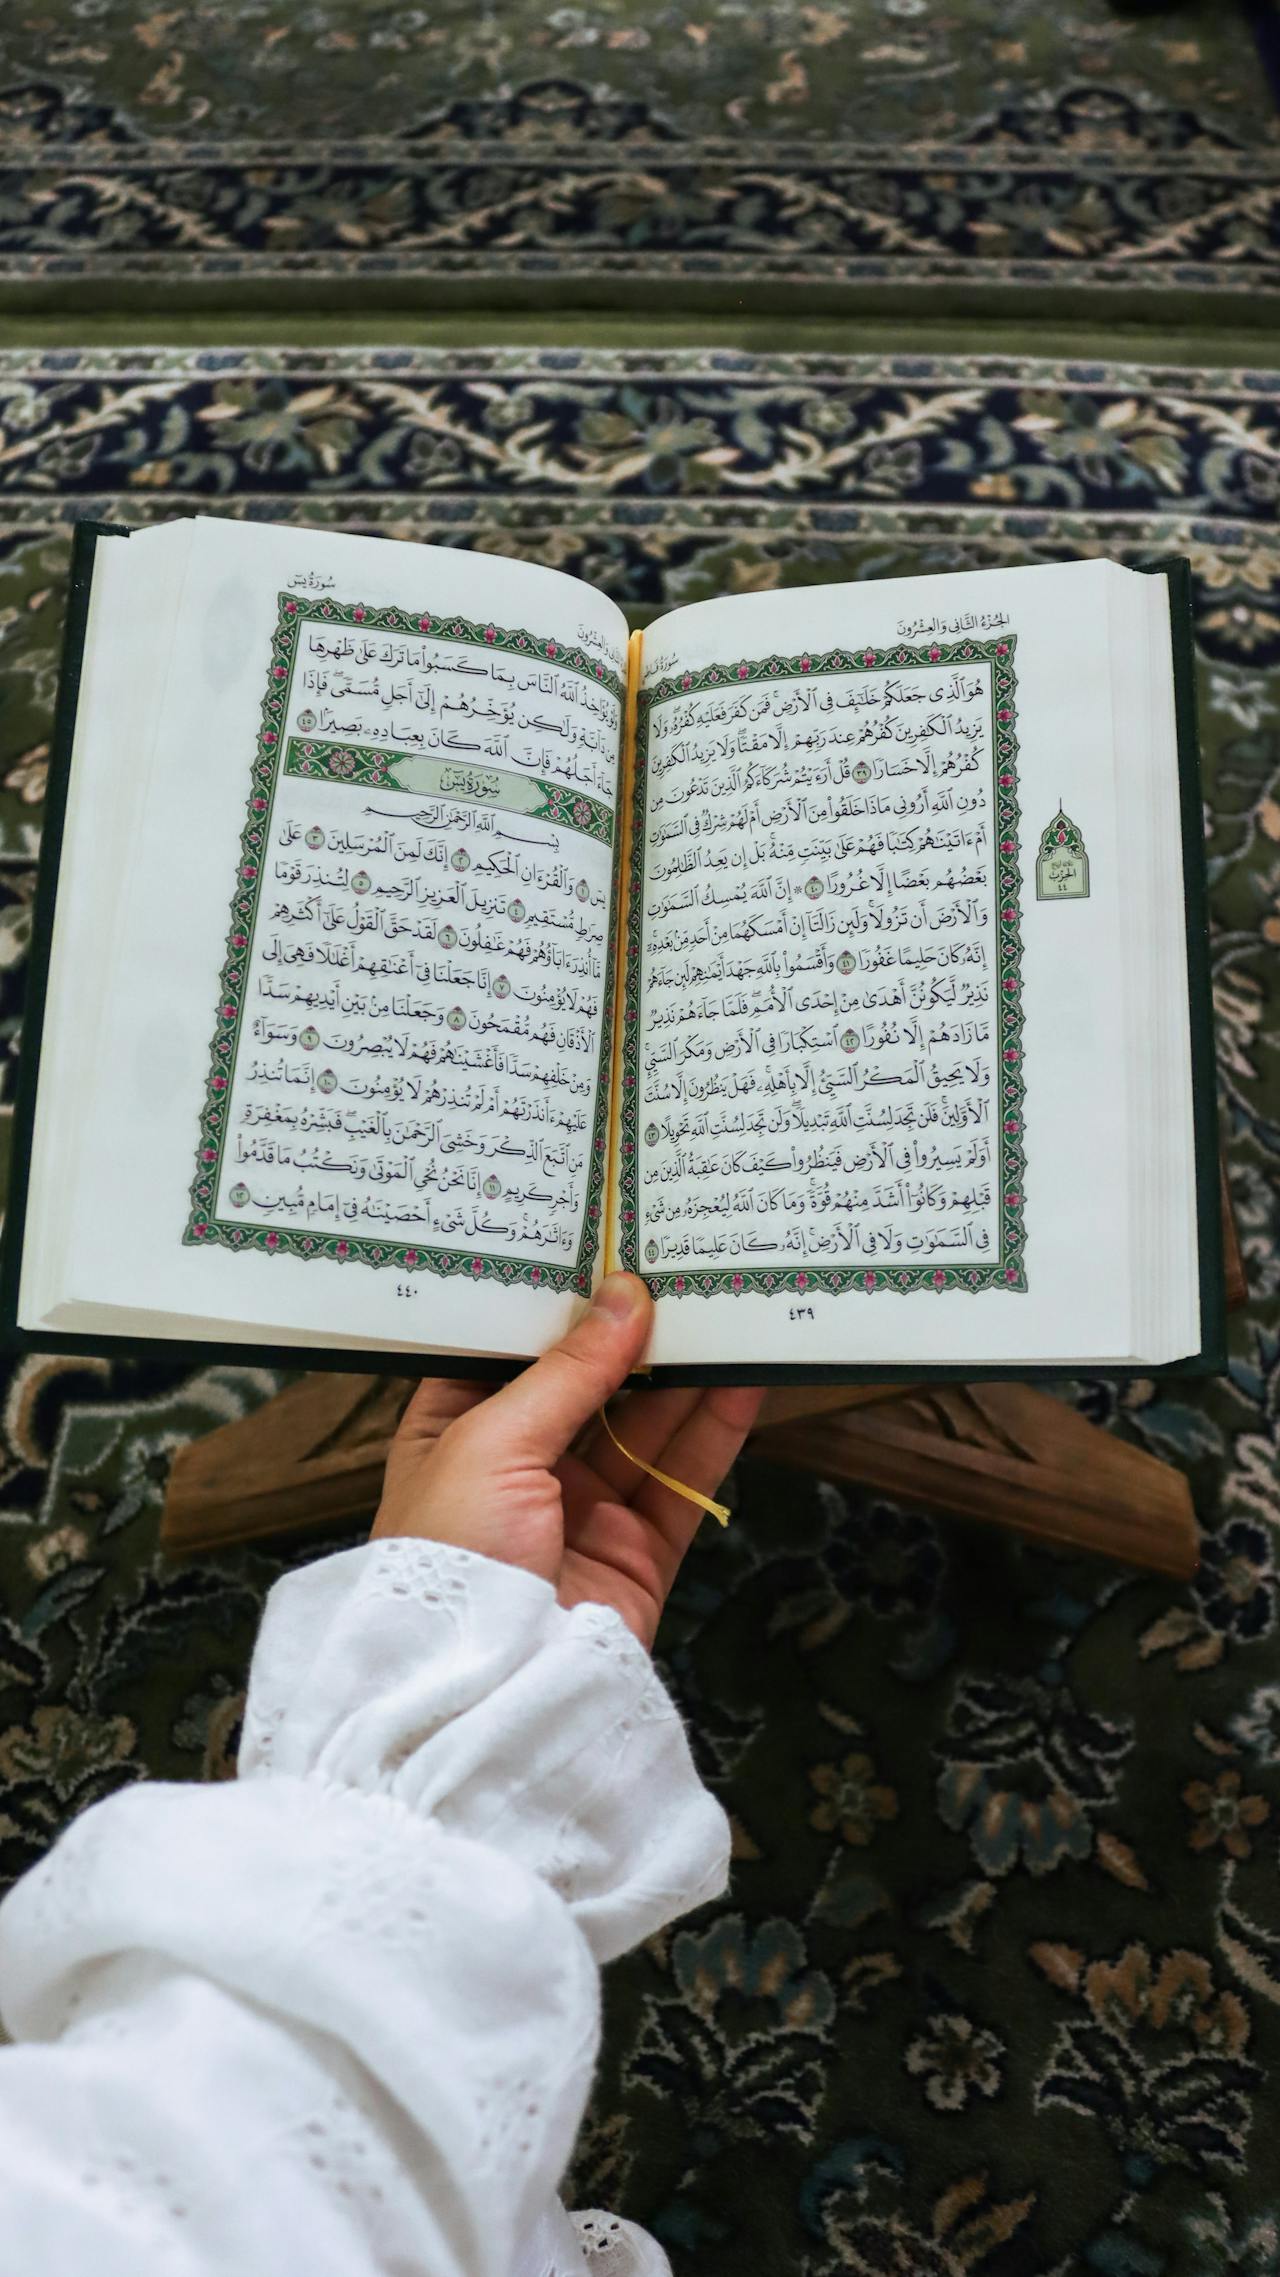 الجزء الثاني والعشرون
هُوَ ٱلَّذِى جَعَلَكُمْ خَلَٰٓئِفَ فِى ٱلْأَرْضِ ۚ فَمَن كَفَرَ فَعَلَيْهِ كُفْرُهُۥ ۖ وَلَا
يَزِيدُ ٱلْكَٰفِرِينَ كُفْرُهُمْ عِندَ رَبِّهِمْ إِلَّا مَقْتًا ۖ وَلَا يَزِيدُ ٱلْكَٰفِرِينَ
كُفْرُهُمْ إِلَّا خَسَارًا ٣٩ قُلْ أَرَءَيْتُمْ شُرَكَآءَكُمُ ٱلَّذِينَ تَدْعُونَ مِن
دُونِ ٱللَّهِ أَرُونِى مَاذَا خَلَقُوا۟ مِنَ ٱلْأَرْضِ أَمْ لَهُمْ شِرْكٌ فِى ٱلسَّمَٰوَٰتِ
أَمْ ءَاتَيْنَٰهُمْ كِتَٰبًا فَهُمْ عَلَىٰ بَيِّنَتٍ مِّنْهُ ۚ بَلْ إِن يَعِدُ ٱلظَّٰلِمُونَ
بَعْضُهُم بَعْضًا إِلَّا غُرُورًا ٤٠ ۞ إِنَّ ٱللَّهَ يُمْسِكُ ٱلسَّمَٰوَٰتِ
وَٱلْأَرْضَ أَن تَزُولَا ۚ وَلَئِن زَالَتَآ إِنْ أَمْسَكَهُمَا مِنْ أَحَدٍ مِّنۢ بَعْدِهِۦٓ ۚ
إِنَّهُۥ كَانَ حَلِيمًا غَفُورًا ٤١ وَأَقْسَمُوا۟ بِٱللَّهِ جَهْدَ أَيْمَٰنِهِمْ لَئِن جَآءَهُمْ
نَذِيرٌ لَّيَكُونُنَّ أَهْدَىٰ مِنْ إِحْدَى ٱلْأُمَمِ ۖ فَلَمَّا جَآءَهُمْ نَذِيرٌ
مَّا زَادَهُمْ إِلَّا نُفُورًا ٤٢ ٱسْتِكْبَارًا فِى ٱلْأَرْضِ وَمَكْرَ ٱلسَّيِّئِ ۚ
وَلَا يَحِيقُ ٱلْمَكْرُ ٱلسَّيِّئُ إِلَّا بِأَهْلِهِۦ ۚ فَهَلْ يَنظُرُونَ إِلَّا سُنَّتَ
ٱلْأَوَّلِينَ ۚ فَلَن تَجِدَ لِسُنَّتِ ٱللَّهِ تَبْدِيلًا ۖ وَلَن تَجِدَ لِسُنَّتِ ٱللَّهِ تَحْوِيلًا ٤٣
أَوَلَمْ يَسِيرُوا۟ فِى ٱلْأَرْضِ فَيَنظُرُوا۟ كَيْفَ كَانَ عَٰقِبَةُ ٱلَّذِينَ مِن
قَبْلِهِمْ وَكَانُوٓا۟ أَشَدَّ مِنْهُمْ قُوَّةً ۚ وَمَا كَانَ ٱللَّهُ لِيُعْجِزَهُۥ مِن شَىْءٍ
فِى ٱلسَّمَٰوَٰتِ وَلَا فِى ٱلْأَرْضِ ۚ إِنَّهُۥ كَانَ عَلِيمًا قَدِيرًا ٤٤
الحزب
٤٤
٤٣٩
سورة يس
والعشرون
وَلَوْ يُؤَاخِذُ ٱللَّهُ ٱلنَّاسَ بِمَا كَسَبُوا۟ مَا تَرَكَ عَلَىٰ ظَهْرِهَا
مِن دَآبَّةٍ وَلَٰكِن يُؤَخِّرُهُمْ إِلَىٰٓ أَجَلٍ مُّسَمًّى ۖ فَإِذَا
جَآءَ أَجَلُهُمْ فَإِنَّ ٱللَّهَ كَانَ بِعِبَادِهِۦ بَصِيرًۢا ٤٥
سورة يس
بِسْمِ ٱللَّهِ ٱلرَّحْمَٰنِ ٱلرَّحِيمِ
يسٓ ١ وَٱلْقُرْءَانِ ٱلْحَكِيمِ ٢ إِنَّكَ لَمِنَ ٱلْمُرْسَلِينَ ٣ عَلَىٰ
صِرَٰطٍ مُّسْتَقِيمٍ ٤ تَنزِيلَ ٱلْعَزِيزِ ٱلرَّحِيمِ ٥ لِتُنذِرَ قَوْمًا
مَّآ أُنذِرَ ءَابَآؤُهُمْ فَهُمْ غَٰفِلُونَ ٦ لَقَدْ حَقَّ ٱلْقَوْلُ عَلَىٰٓ أَكْثَرِهِمْ
فَهُمْ لَا يُؤْمِنُونَ ٧ إِنَّا جَعَلْنَا فِىٓ أَعْنَٰقِهِمْ أَغْلَٰلًا فَهِىَ إِلَى
ٱلْأَذْقَانِ فَهُم مُّقْمَحُونَ ٨ وَجَعَلْنَا مِنۢ بَيْنِ أَيْدِيهِمْ سَدًّا
وَمِنْ خَلْفِهِمْ سَدًّا فَأَغْشَيْنَٰهُمْ فَهُمْ لَا يُبْصِرُونَ ٩ وَسَوَآءٌ
عَلَيْهِمْ ءَأَنذَرْتَهُمْ أَمْ لَمْ تُنذِرْهُمْ لَا يُؤْمِنُونَ ١٠ إِنَّمَا تُنذِرُ
مَنِ ٱتَّبَعَ ٱلذِّكْرَ وَخَشِىَ ٱلرَّحْمَٰنَ بِٱلْغَيْبِ ۖ فَبَشِّرْهُ بِمَغْفِرَةٍ
وَأَجْرٍ كَرِيمٍ ١١ إِنَّا نَحْنُ نُحْىِ ٱلْمَوْتَىٰ وَنَكْتُبُ مَا قَدَّمُوا۟
وَءَاثَٰرَهُمْ ۚ وَكُلَّ شَىْءٍ أَحْصَيْنَٰهُ فِىٓ إِمَامٍ مُّبِينٍ ١٢
٤٤٠